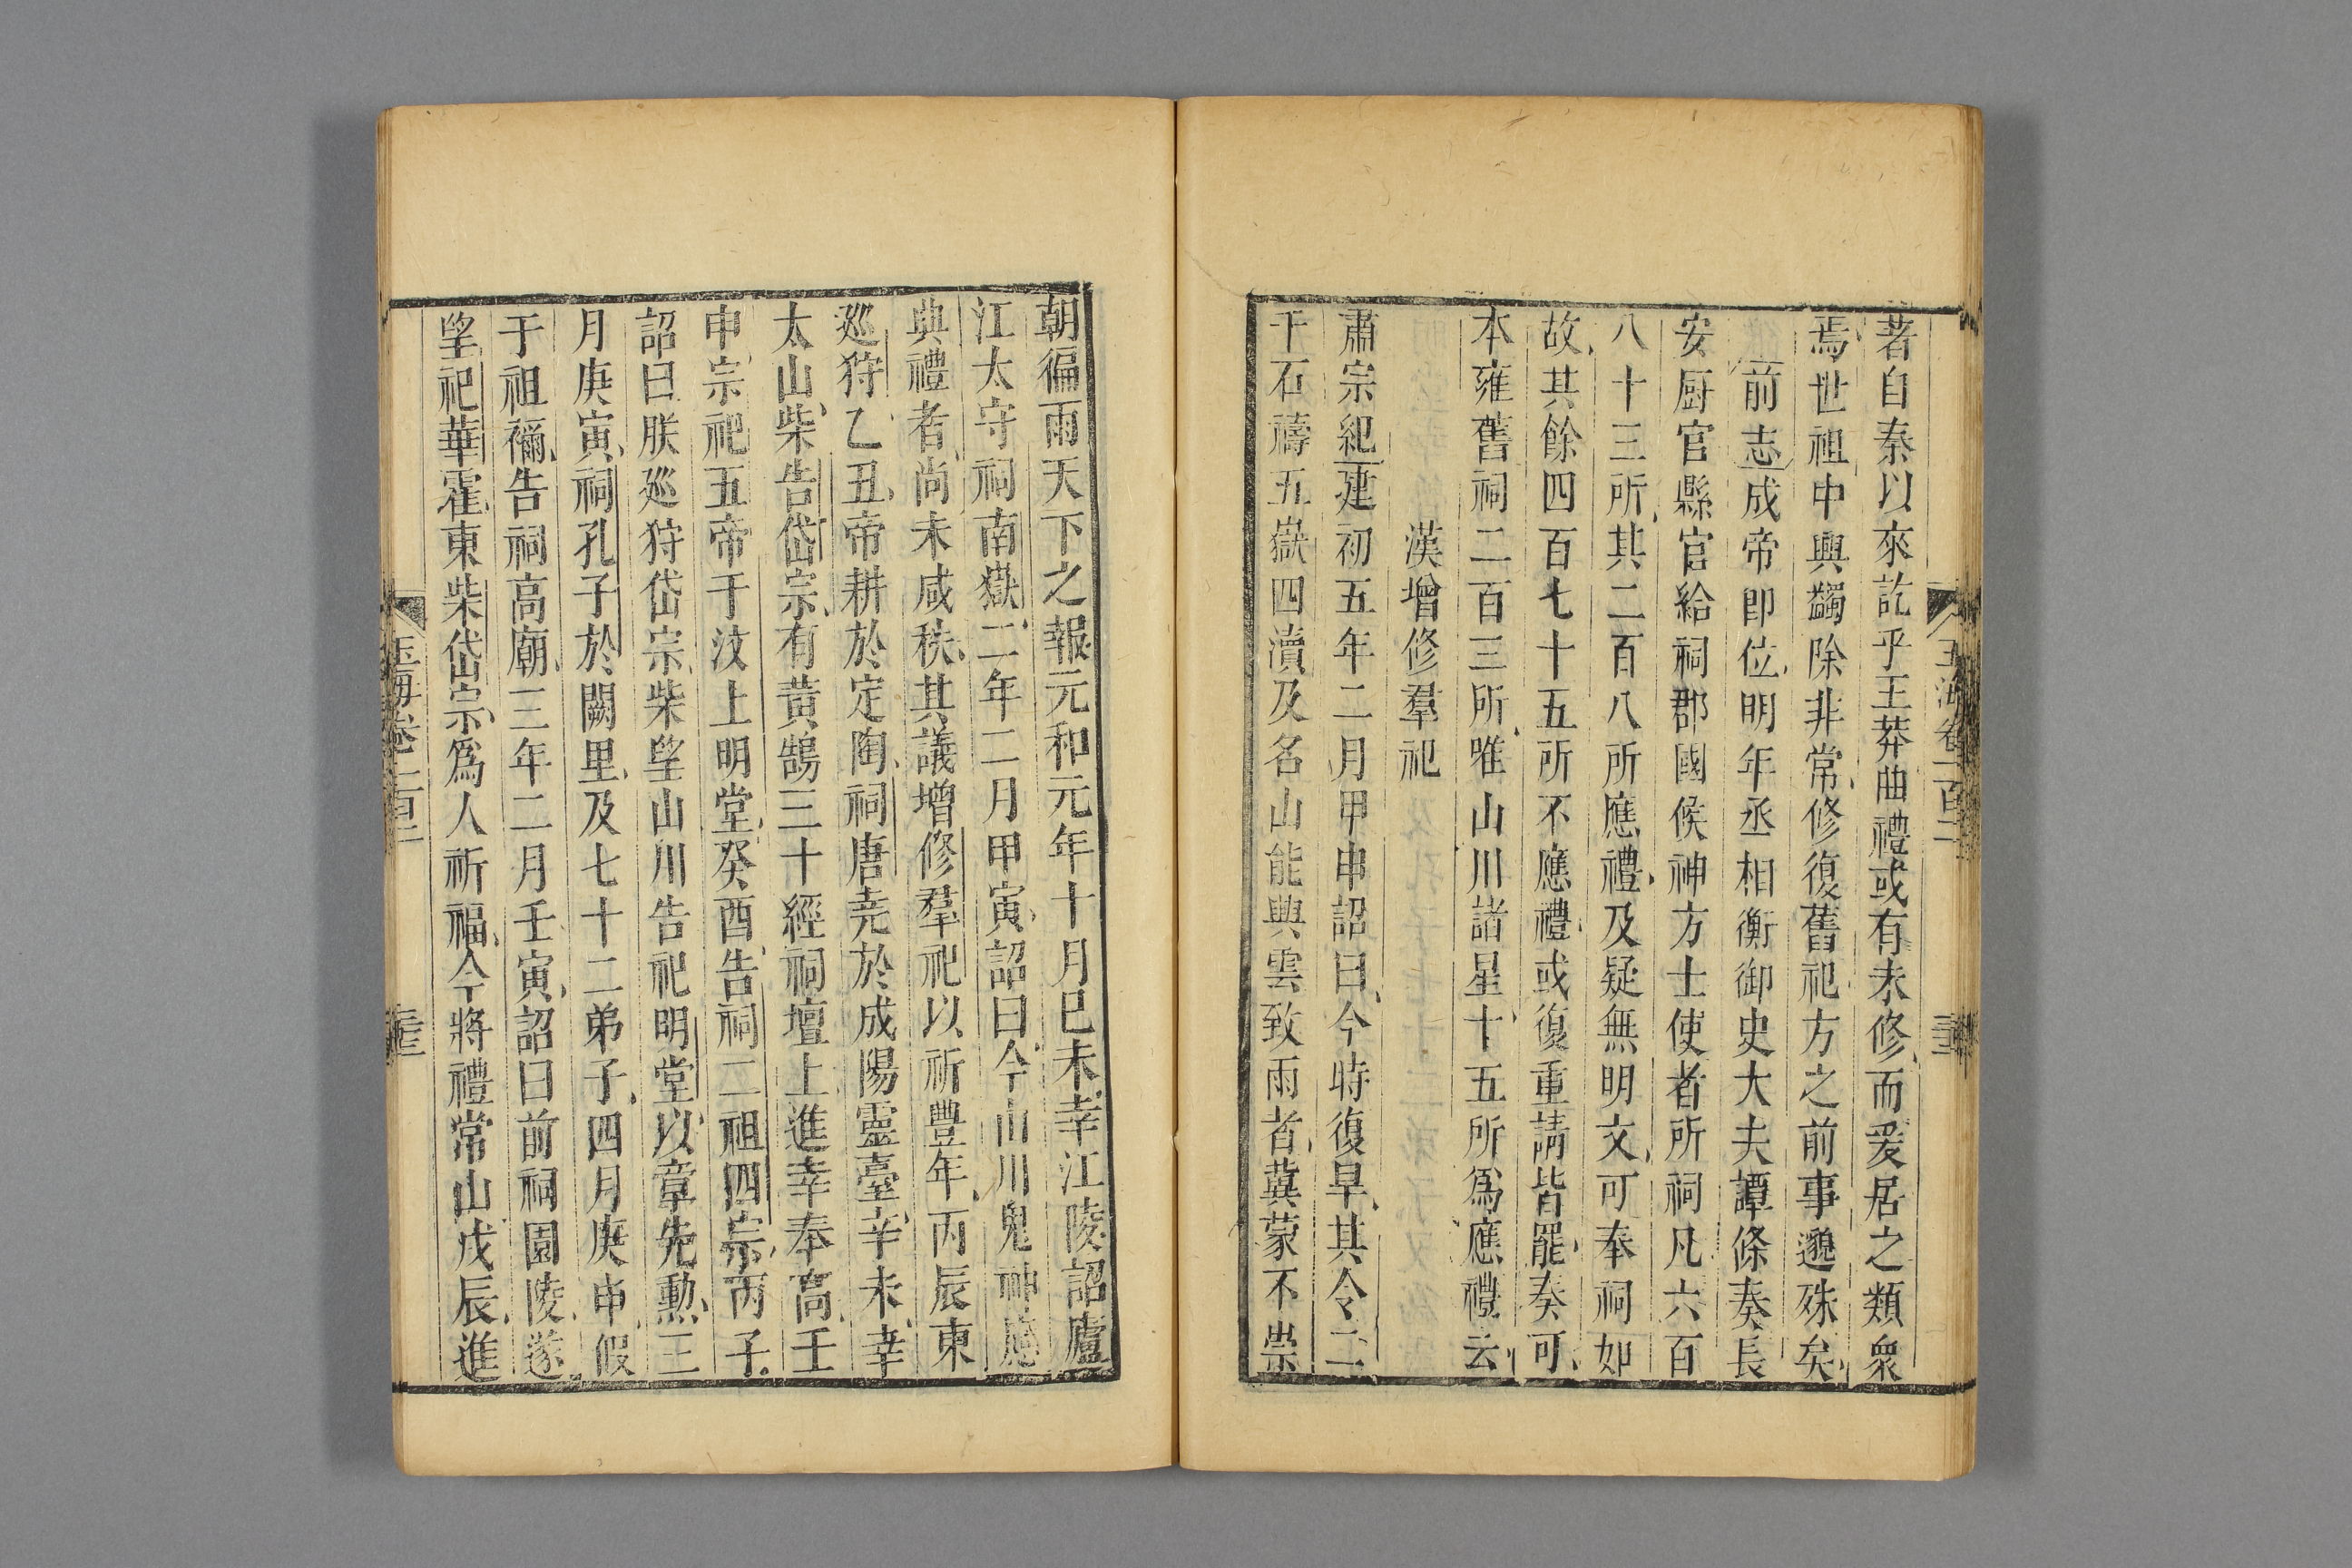 玉海卷一百二
著自秦以來訖乎王莽曲禮或有未修而爰居之類衆
焉世祖中興蠲除非常修復舊祀方之前事邈殊矣
前志成帝卽位明年丞相衡御史大夫譚條奏長
安厨官縣官給祠郡國候神方士使者所祠凡六百
八十三所其二百八所應禮及疑無明文可奉祠如
故其餘四百七十五所不應禮或復重請皆罷奏可
本雍舊祠二百三所唯山川諸星十五所爲應禮云
漢增修羣祀
肅宗紀建初五年二月甲申詔曰今時復旱其令二
千石禱五嶽四瀆及名山能興雲致雨者冀蒙不崇
朝徧雨天下之報元和元年十月己未幸江陵詔廬
江太守祠南嶽二年二月甲寅詔曰今山川鬼神應
典禮者尚未咸秩其議增修羣祀以祈豐年丙辰東
廵狩乙丑帝耕於定陶祠唐堯於成陽靈臺辛未幸
太山柴告岱宗有黃鵠三十經祠壇上進幸奉高壬
申宗祀五帝于汶上明堂癸酉告祠二祖四宗丙子
詔曰朕廵狩岱宗柴望山川告祀明堂以章先勲三
月庚寅祠孔子於闕里及七十二弟子四月庚申假
于祖禰告祠高廟三年二月壬寅詔曰前祠園陵遂
望祀華霍東柴岱宗爲人祈福今將禮常山戊辰進
玉海卷一百二